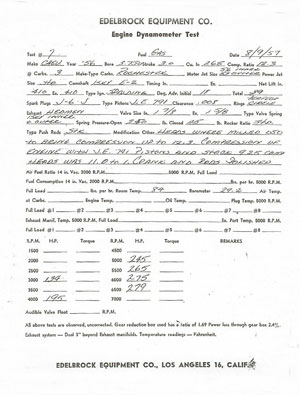 EDELBROCK EQUIPMENT CO.
Engine Dynamometer Test
Test # 7 Fuel GAS Date 8/9/57
Make CHEV Year '56 Bore 3.750 Stroke 3.0 Cu. In. 265 Comp. Ratio 12.3
# Carbs. 3 Make-Type Carbs. ROCHESTER Motor Jet Size Power Jet
Size Camshaft Timing In. Ex. Net Lift In.
Ex. Type Ign. SPALDING Deg. Adv. Initial 18 Total 39
Spark Plugs J-6 J Type Pistons J.E. 791 Clearance .008 Rings
Exhaust HEDMEN Valve Size In. 1 7/8 Ex. 1 5/8 Type Valve Spring
Spring Pressure-Open Lb. Closed Lb. Rocker Ratio
Type Push Rods STK Modification Other HEADS WHERE MILLED .050
TO BRING COMPRESSION UP TO 12.3. COMPRESSION OF
ENGINE WITH J.E. 791 PISTONS AND STOCK 9.25 COMP
HEADS WAS 11.0 to 1 CRANK AND RODS POLISHED
Air Fuel Ratio 14 in. Vac. 2000 R.P.M. 5000 R.P.M. Full Load
Fuel Consumption 14 in. Vac. 2000 R.P.M. Lbs. per hr. 5000 R.P.M.
Full Load Lbs. per hr. Room Temp. 84 Barometer 29.2 Air Temp.
at Carbs. Engine Temp. Oil Temp. Plug Temp. 5000 R.P.M.
Full Load #1 #2 #3 #4 #5 #6 #7 #8
Exhaust Manif. Temp. 5000 R.P.M. Full Load Ex. Port Temp. 5000 R.P.M.
Full Load #1 #2 #3 #4 #5 #6 #7 #8
R.P.M. H.P. Torque R.P.M. H.P. Torque REMARKS
2000 4500
2500 5000 245
3000 5500 265
3500 6000 275
6500 279
4000 195 7000
Audible Valve Float R.P.M.
All above tests are observed, uncorrected. Gear reduction box used has a ratio of 1.69 Power loss through gear box 2.4%.
Exhaust system — Dual 3" beyond Exhaust manifolds. Temperature readings — Fahrenheit.
EDELBROCK EQUIPMENT CO., LOS ANGELES 16, CALIF.